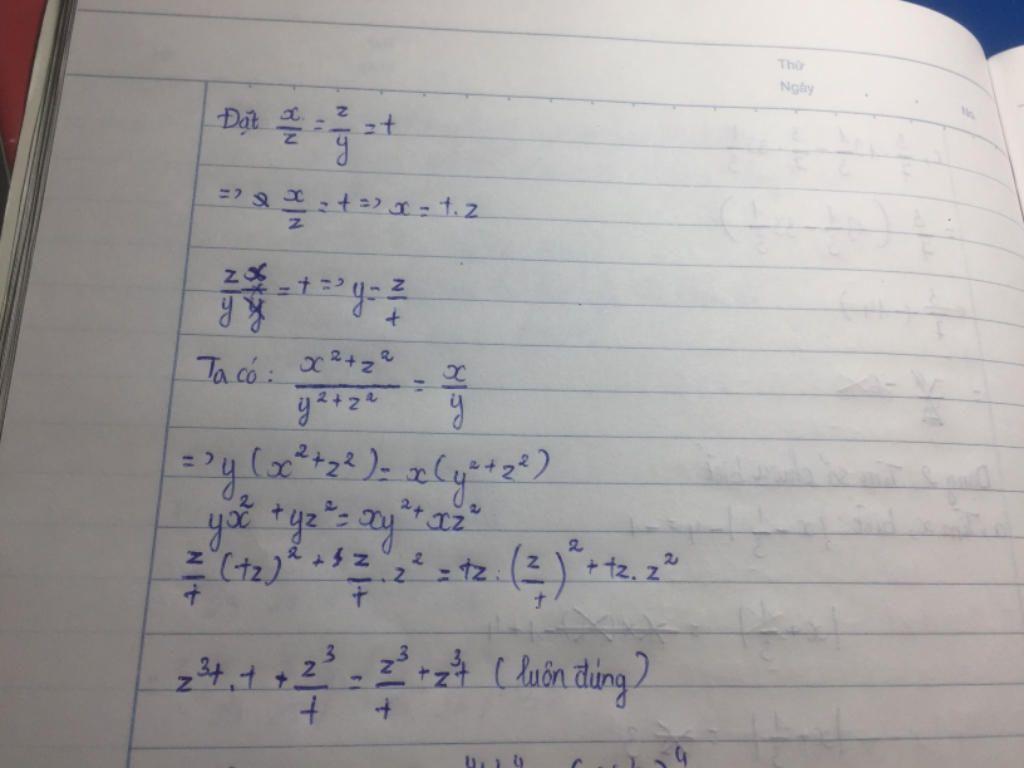 Thứ
Ngày
No.
Đặt x/z = z/y = t
=> x/z = t => x = t.z
z/y = t => y = z/t
Ta có: (x²+z²)/(y²+z²) = x/y
=> y(x²+z²) = x(y²+z²)
yx² + yz² = xy² + xz²
z/t (tz)² + z/t . z² = tz . (z/t)² + tz . z²
z³t . t + z³/t = z³/t + z³t (luôn đúng)